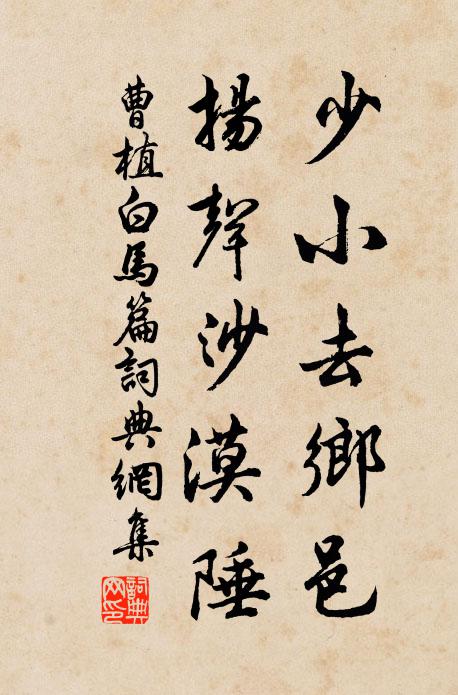 少小去鄉邑
揚聲沙漠陲
曹植白馬篇詞典網集
詞典网印